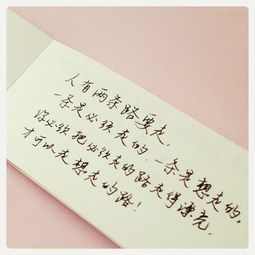 人有两条路要走，
一条是必须走的，一条是想走的。
你必须把必须走的路走得漂亮，
才可以走想走的路！